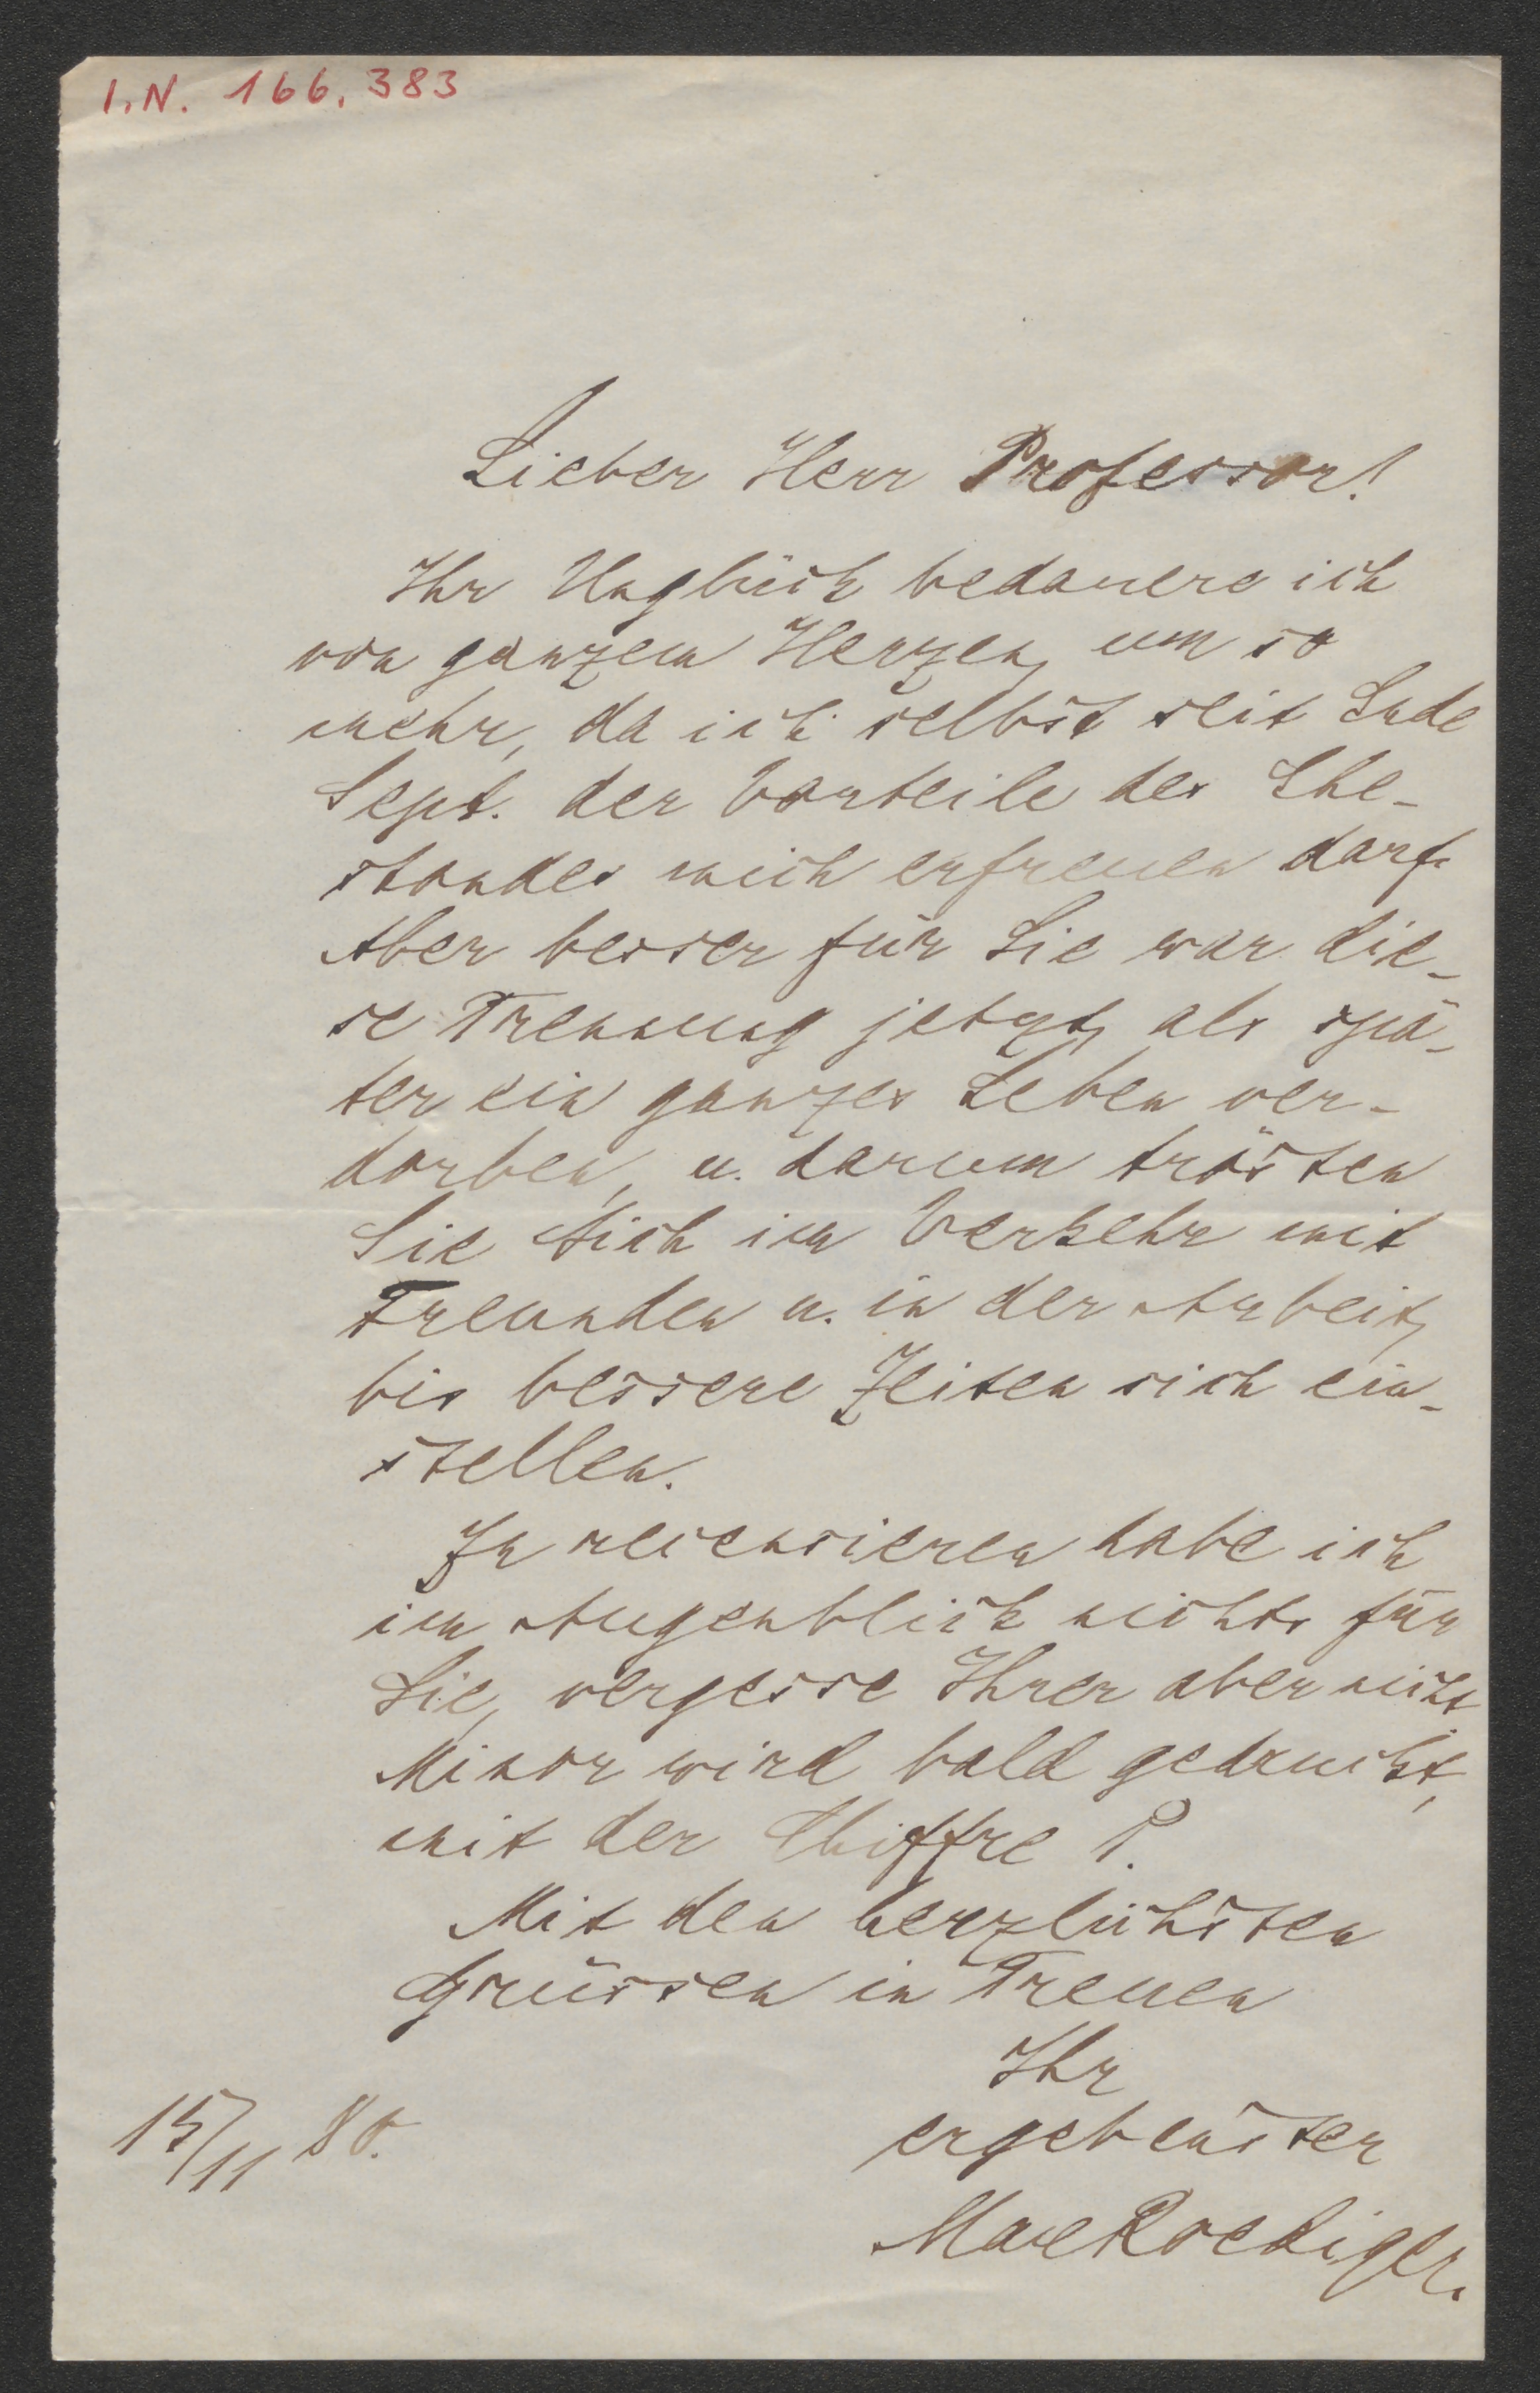 I.N. 166.383
Lieber Herr Professor!
Ihr Unglück bedauere ich
von ganzem Herzen, um so
mehr, da ich selbst seit Ende
Sept. der Vorteile des Ehe-
standes mich erfreuen darf.
Aber besser für Sie war die-
se Trennung jetzt, als spä-
ter ein ganzes Leben ver-
dorben, u. darum trösten
Sie Sich im Verkehr mit
Freunden u. in der Arbeit,
bis bessere Zeiten sich ein-
stellen.
Zu recensieren habe ich
im Augenblick nichts für
Sie, vergesse Ihrer aber nicht.
Minor wird bald gedruckt,
mit der Chiffre P.
Mit den herzlichsten
Grüssen in Treuen
Ihr
ergebenster
Max Roediger.
15/11 80.